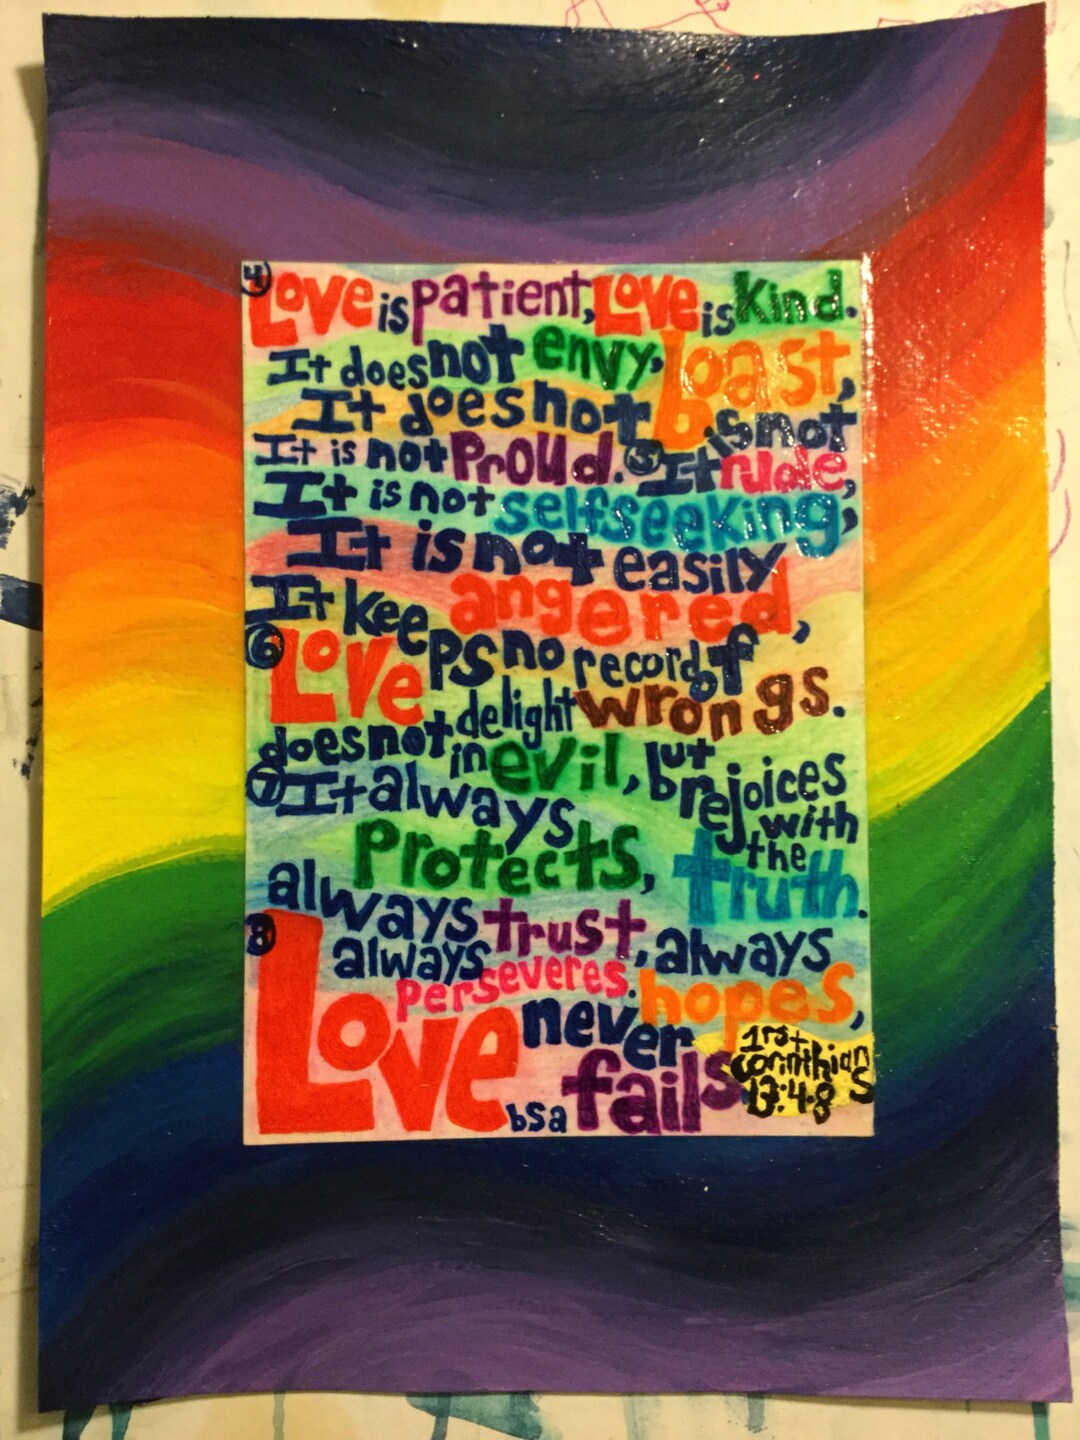 ④ Love is patient, Love is kind.
It does not envy,
It does not boast,
It is not Proud. ⑤ It is not rude,
It is not selfseeking,
It is not easily angered,
It keeps no record of wrongs.
⑥ Love does not delight in evil, but rejoices with the truth.
⑦ It always Protects,
always trust, always hopes,
always perseveres.
⑧ Love never fails
1rst Corinthians 13:4-8
bsa